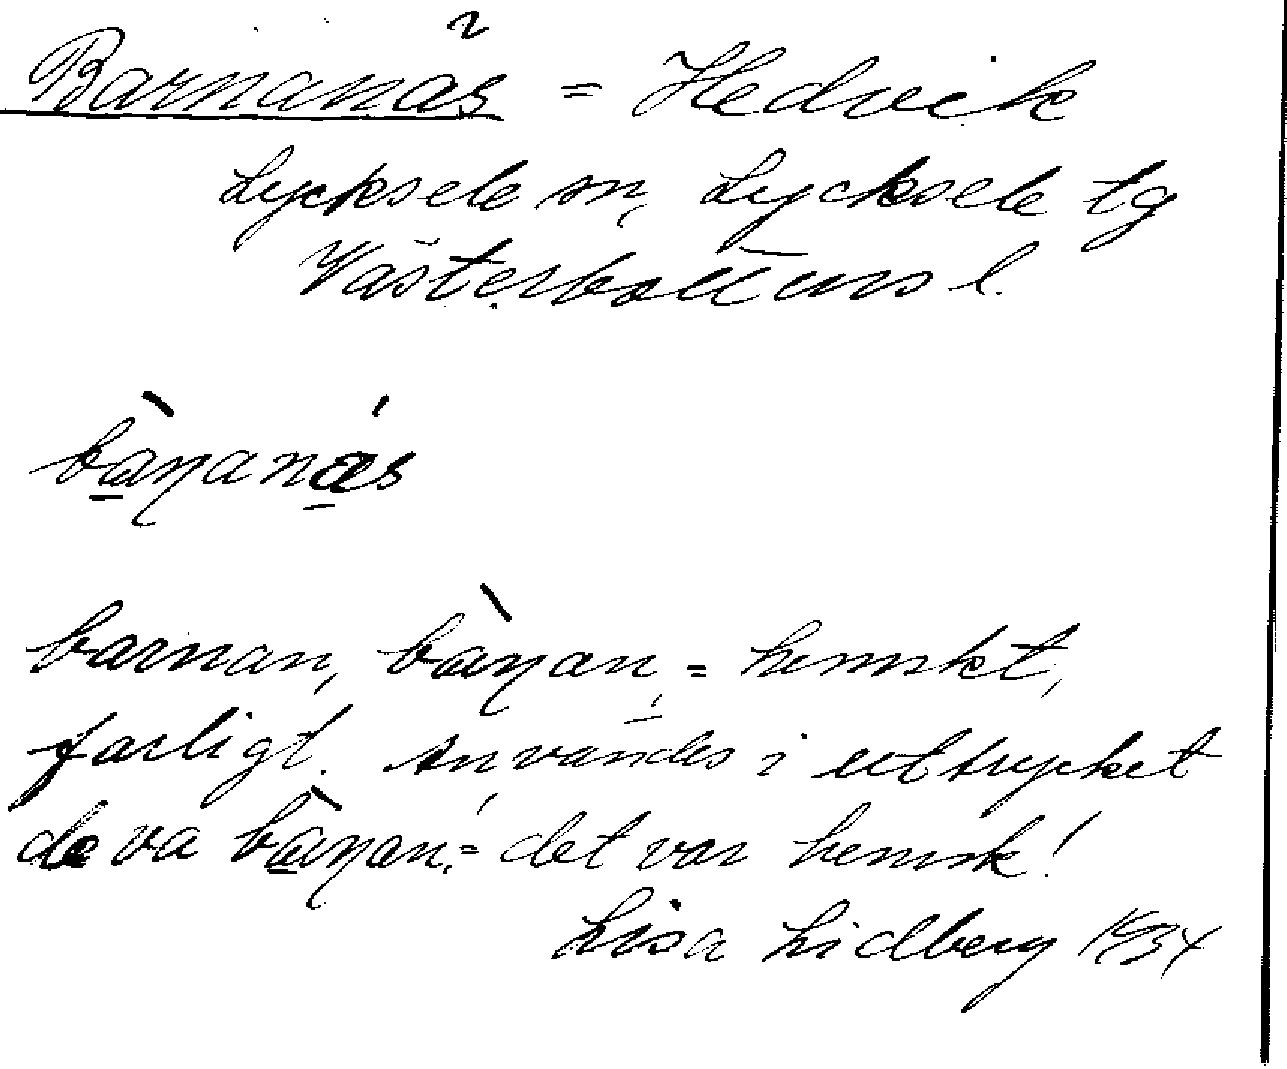 Barnanäs = Hedvik
Lycksele sn, Lycksele tg
Västerbottens l.
bànanás
barnan, bànan, = hemskt,
farligt. Användes i uttrycket
de va bànan, = det var hemsk!
Lisa Lidberg 1934